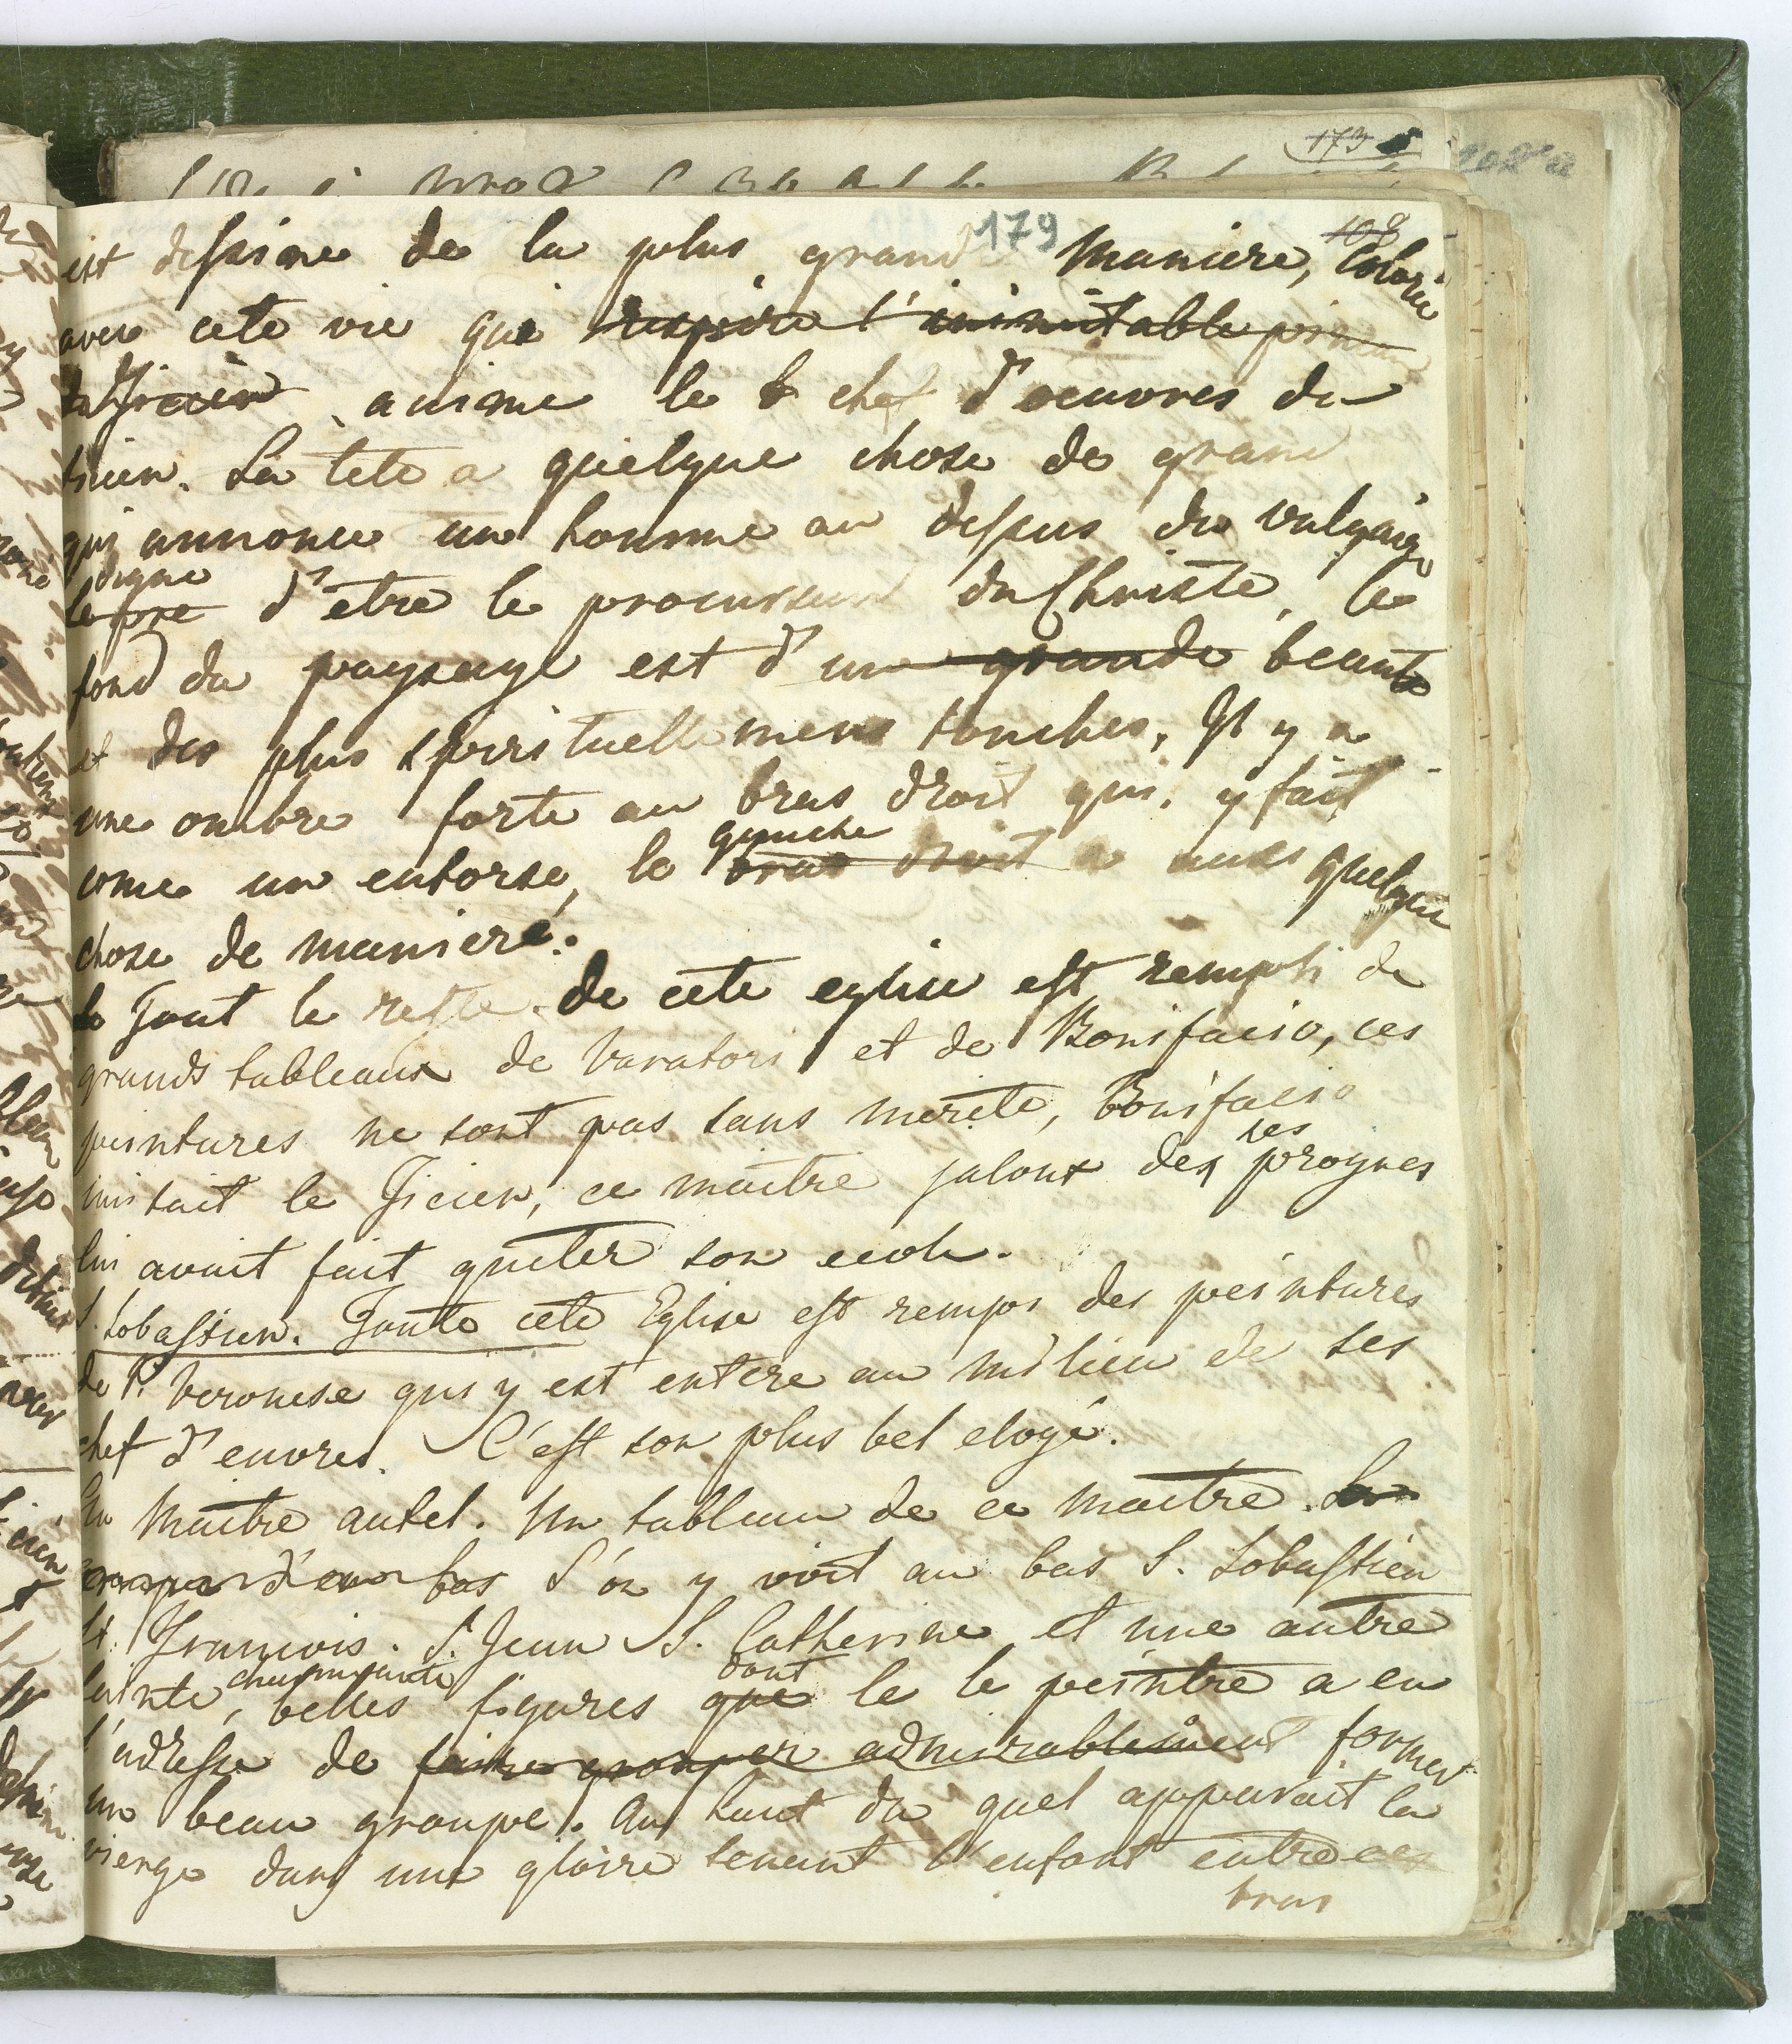 173
179
108
est dessine de la plus grande Maniere, Colorie
avec cete vie que respire l'inimitable
du Ticien anime le chef d'oeuvres du
ticien. Sa tete a quelque chose de grand
qui annonce un homme au dessus du vulgaire
digne
d'être le procurseur du Christe, le
fond du paysage est d'une grande beauté
et des plus spirituellement touches, Il y a
une ombre forte au bras droit qui, y fait
come un entorse, le bras droit a aussi quelque
gauche
chose de manieré.
Tout le reste de cete eglise est rempli de
grands tableaux de Varatori et de Bonifacio, ces
peintures ne sont pas sans merite, Bonifacio
imitait le Ticien, ce maitre jaloux des progres
ses
lui avait fait quiter son ecole.
S. Sebastien. Toute cete Eglise est rempli des peintures
de P. Veronese qui y est entere au milieu de ses
chef d'euvres. C'est son plus bel eloge.
Au Maitre autel. Un tableau de ce maitre.
bas l'on y voit au bas S. Sebastien
St. Francois. S. Jean S. Catherine et une autre
sainte, belles figures que le le peintre a eu
charmante dont
l'adresse de faire grouper admirablement former
un beau groupe. Au haut du quel apparait la
vierge dans une gloire tenant l'enfant entre ces
bras